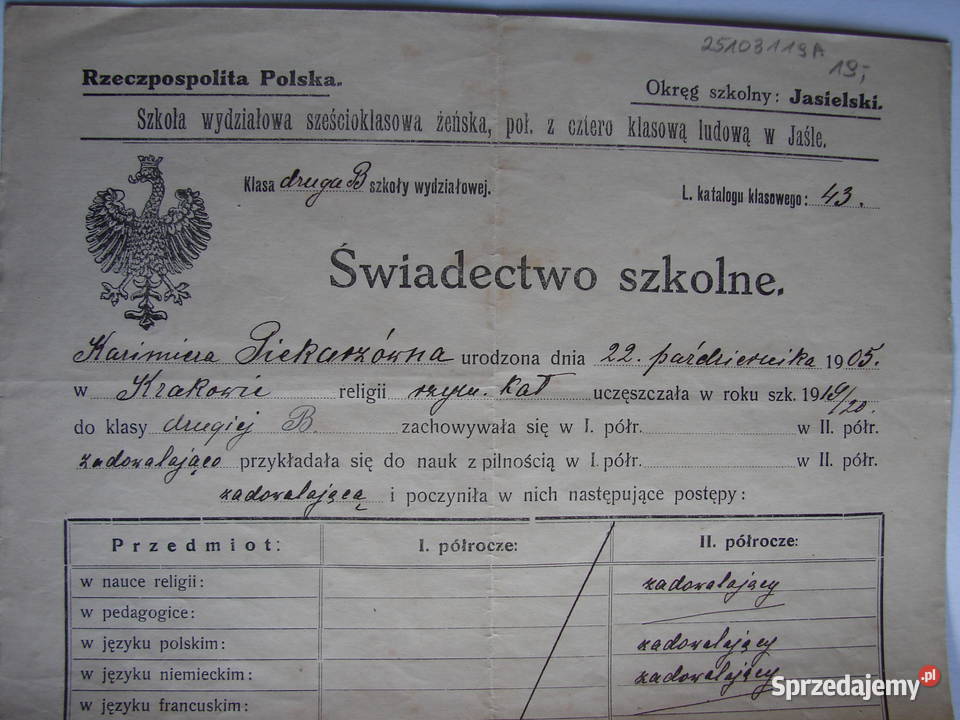 25103119A
19,-
Rzeczpospolita Polska.
Okręg szkolny: Jasielski.
Szkoła wydziałowa sześcioklasowa żeńska, poł. z cztero klasową ludową w Jaśle.
Klasa druga B szkoły wydziałowej.
L. katalogu klasowego: 43.
Świadectwo szkolne.
Kazimiera Piekarzówna urodzona dnia 22. października 1905.
w Krakowie religii rzym. kat uczęszczała w roku szk. 1919/20.
do klasy drugiej B. zachowywała się w I. półr. w II. półr.
zadowalająco przykładała się do nauk z pilnością w I. półr. w II. półr.
zadowalającą i poczyniła w nich następujące postępy:
Przedmiot: I. półrocze: II. półrocze:
w nauce religii: zadowalający
w pedagogice:
w języku polskim: zadowalający
w języku niemieckim: zadowalający
w języku francuskim:
Sprzedajemy.pl